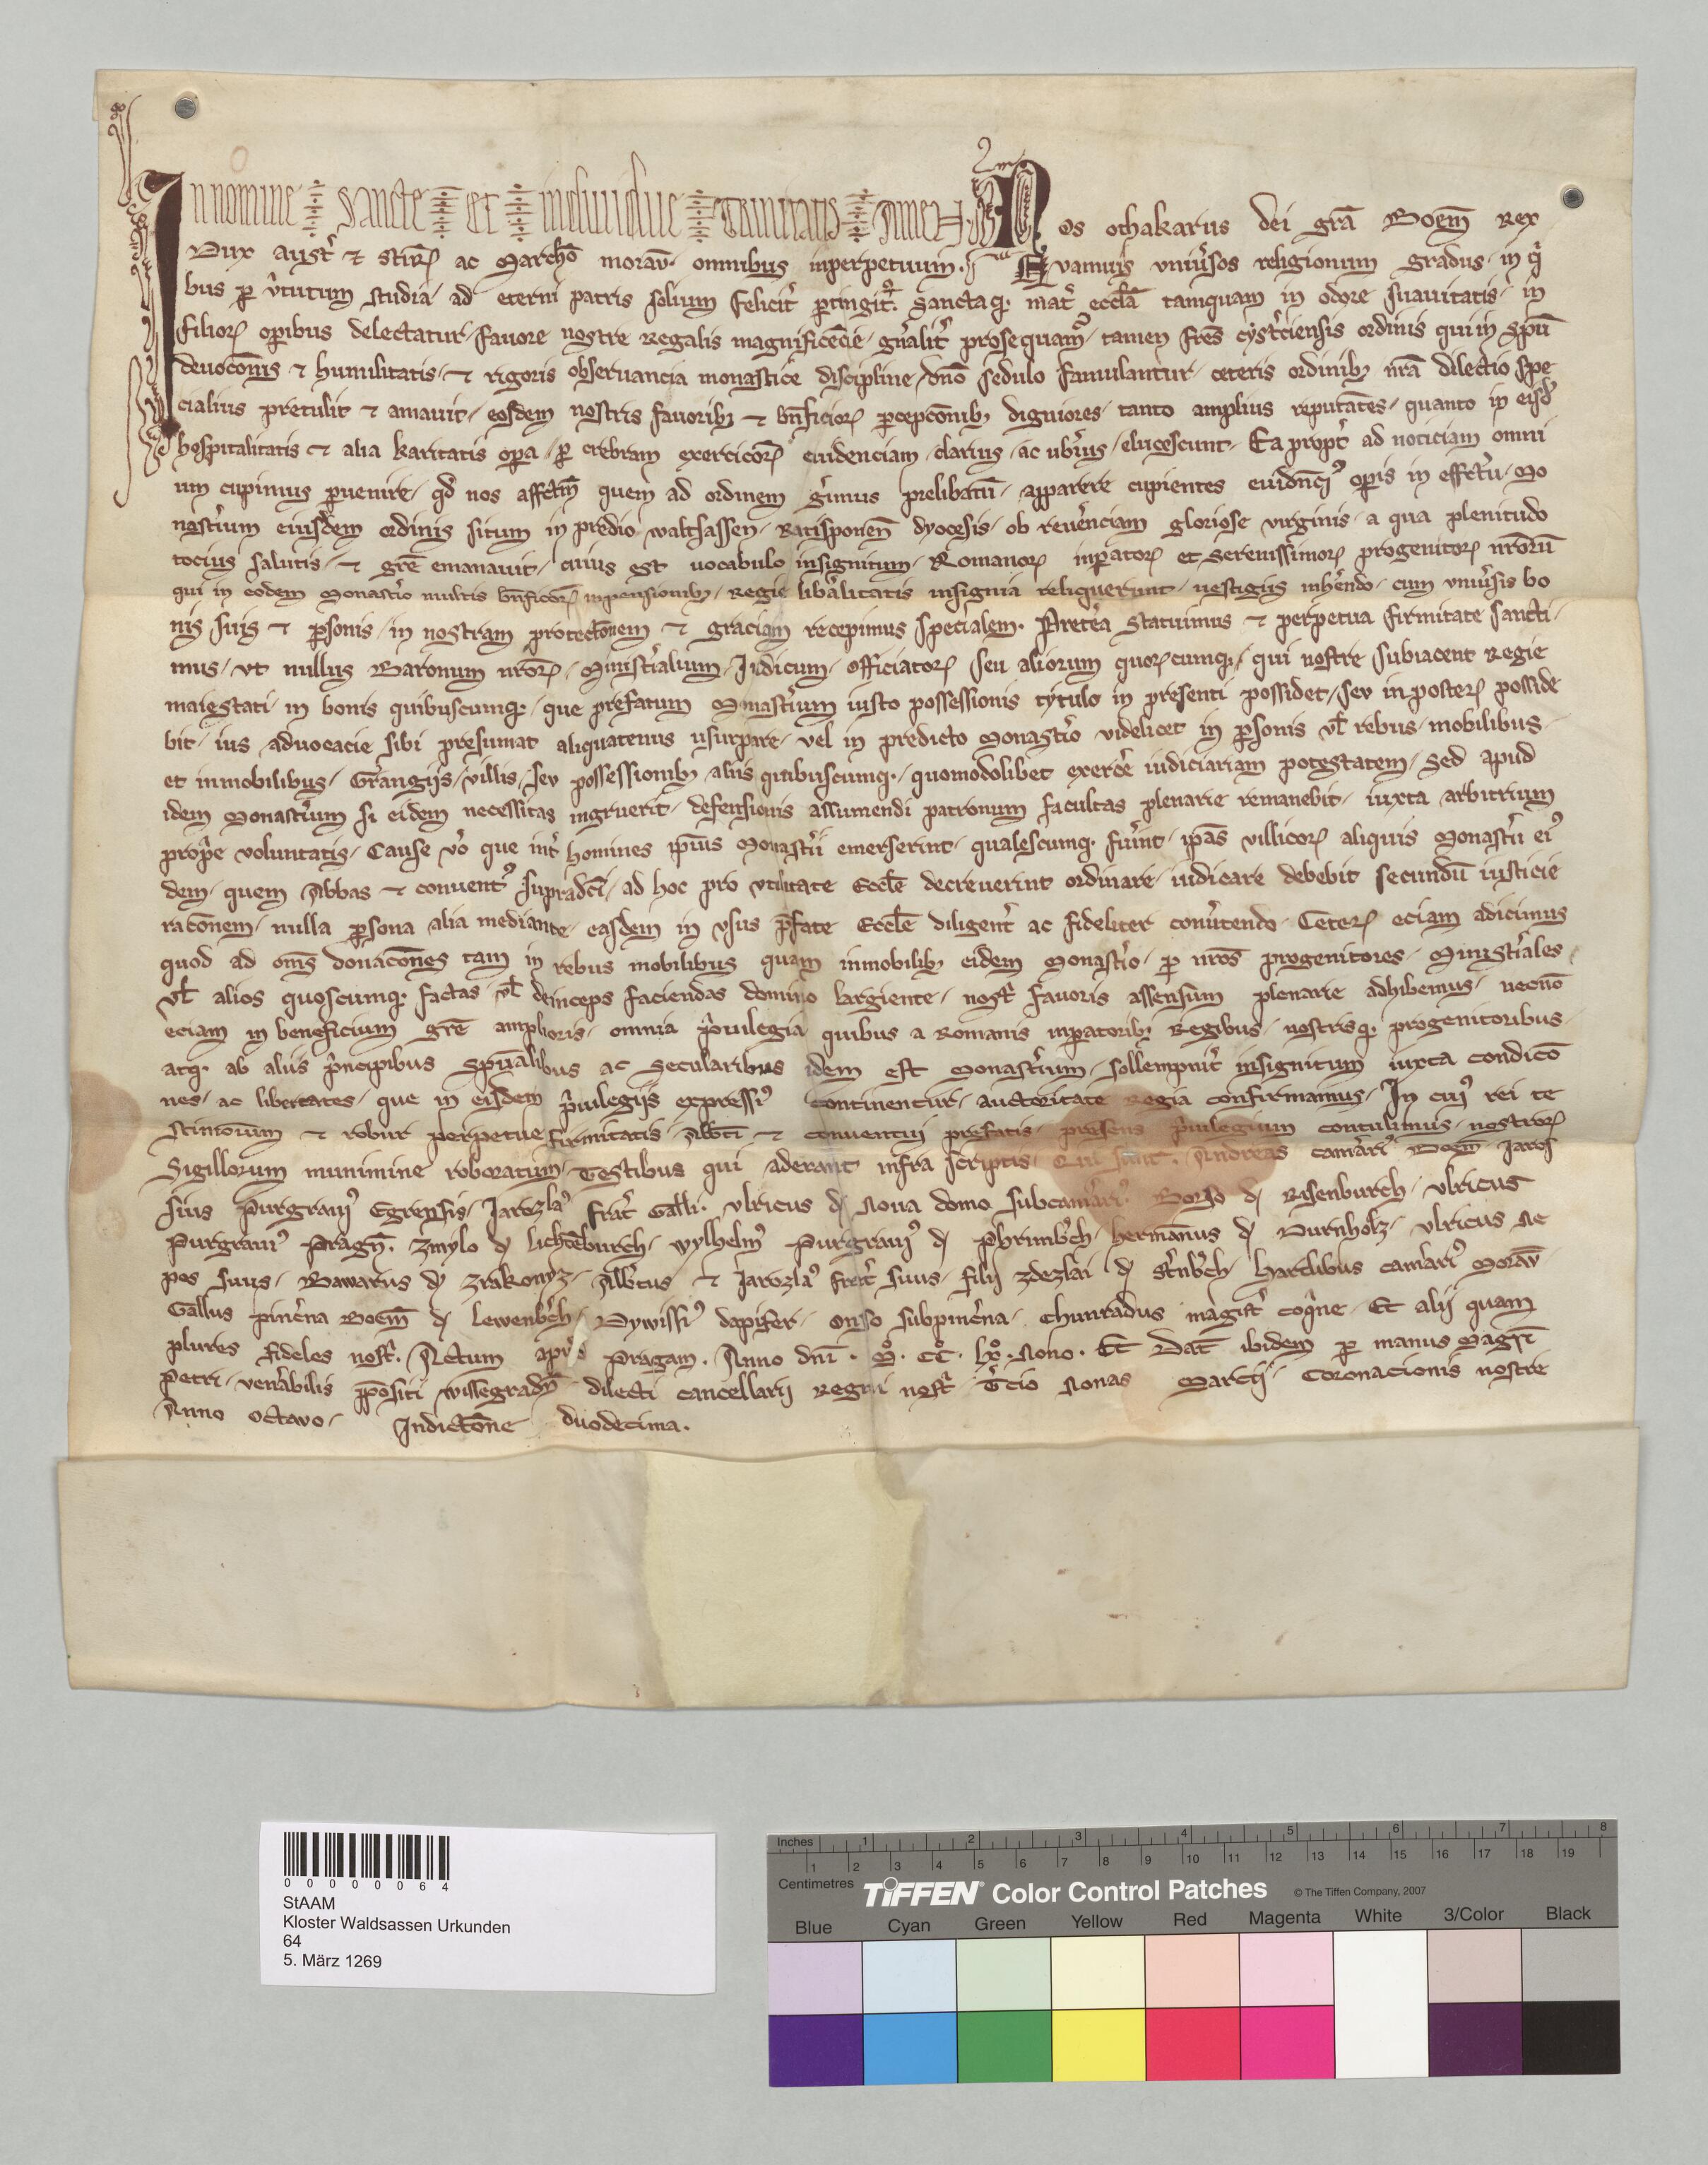 In nomine Sancte et indiuidue Trinitatis Amen. Nos othakarus dei grā Boem̄ Rex
Dux austr̄ ⁊ Stirꝝ ac Marchō morav̄. omnibus inperpetuum. Qvamuis vniu̓sos religionum gradus in q̓
bus ꝑ v̓tutum studia ad eterni patris solium felicit̓ ꝑtingit᷑. Sanctaqꝫ mat̓ eccl̄a tamquam in odore suauitatis in
filioꝝ oꝑibus delectatur fauore nostre Regalis magnificēcie gn̄alit̓ prosequam᷑ tamen fr̄es cyst̓ciensis ordinis qui in sp̄u
deuoc̄onis ⁊ humilitatis ⁊ rigoris obseruancia monastice discipline dn̄o sedulo famulantur ceteris ordinibꝫ nr̄a dilectio spe
cialius pretulit ⁊ amauit eosdem nostris fauoribꝫ ⁊ bn̄ficioꝝ ꝑcepc̄onibꝫ digniores tanto amplius reputātes quanto in eisd̓
hospitalitatis ⁊ alia karitatis oꝑa ꝑ crebram exercicoꝝ euidenciam clarius ac ub̓ius elucescunt Ea propt̓ ad noticiam omni
um cupimus ꝑuenire qd̓ nos affc̄m quem ad ordinem g̓imus prelibatū apparere cupientes euidn̄cꝰ oꝑis in effc̄u Mo
nost̓ium eiusdem ordinis situm in predio waltsassen Ratisponen̄ dyocesis ob reu̓enciam gloriose virginis a qua plenitudo
tocius salutis ⁊ gr̄e emanauit cuius est uocabulo insignitum Romanoꝝ inꝑatoꝝ et Serenissimoꝝ progenitoꝝ nr̄orū
qui in eodem Monast̓io multis bn̄ficioꝝ inpensionibꝫ Regie lib̓alitatis insignia reliquerunt uestigiis inh̓endo cum vniu̓sis bo
nis suis ⁊ ꝑsonis in nostram protecc̄onem ⁊ graciam recepimus specialem. Pret̓ea Statuimus ⁊ perpetua firmitate sanci
mus vt nullus Baronum nr̄oꝝ Minist̓ialium Iudicum officiatoꝝ seu aliorum quoꝝcumqꝫ qui nostre subiacent Regie
maiestati in bonis quibuscumqꝫ que prefatum Monast̓ium iusto possessionis tytulo in presenti possidet sev in posteꝝ posside
bit ius aduocacie sibi presumat aliquatenus usurpare vel in predicto Monast̓io videlicet in ꝑsonis vl̄ rebus mobilibus
et inmobilibus Grangijs villis sev possessionibꝫ aliis quibuscumqꝫ quomodolibet exerc̓e iudiciariam potestatem Sed apud
idem Monast̓ium si eidem necessitas ingruerit defensionis assumendi patronum facultas plenarie remanebit iuxta arbitrium
prop̓e voluntatis Cause v̓o que int̓ homines ip̄ius Monast̓ii emerserint qualescumqꝫ fu̓int ip̄as villicoꝝ aliquis Monast̓ii eiꝰ
dem quem Abbas ⁊ conuentꝰ supradc̄i ad hoc pro vtilitate Eccl̄e decreuerint ordinare iudicare debebit secundū iusticie
rac̄onem nulla ꝑsona alia mediante easdem in vsus p̄fate Eccl̄e diligent̓ ac fideliter conu̓tendo Ceteꝝ eciam adicimus
quod ad om̄s donac̄ones tam in rebus mobilibus quam inmobilibꝫ eidem Monast̓io ꝑ nr̄os progenitores Minist̓iales
vl̄ alios quoscumqꝫ factas vl̄ deinceps faciendas domino largiente nost̓ fauoris assensum plenarie adhibemus necnō
eciam in beneficium gr̄e amplioris omnia p̓uilegia quibus a Romanis inꝑatoribꝫ Regibus nostrisqꝫ progenitoribus
atqꝫ ab aliis p̓ncipibus spūalibus ac Secularibus idem est Monast̓ium sollempnit̓ insignitum iuxta condicō
nes ac libertates que in eisdem p̓uilegijs expressiꝰ continentur auctoritate Regia confirmamus In cuiꝰ rei te
stimonium ⁊ robur perpetue firmitatis Abb̄ti ⁊ conuentuj prefatis presens p̓uilegium contulimus nostroꝝ
Sigillorum munimine roboratum Testibus qui aderant infra scriptis Qui sunt. Andreas cam̓ariꝰ Boem̄ Iaros
sius Purgrauiꝰ Egrensis Iarozlaꝰ frat̓ Galli. vlricus de Noua domo subcam̓ariꝰ Borso de Risenburch vlricus
Purgrauiꝰ Pragn̄. Zmylo de Lichtēburch wylhelmꝰ Purgrauiꝰ de Phrimb̓ch herman̄us de Durnholz vlricus ne
pos suus Bawarus de Zrakonyz Alb̓tus ⁊ Iarozlaꝰ frat̓ suus filij Zdezlai de St̓nb̓ch hartlibus cam̓ariꝰ Morav̄
Gallus pinc̓na Boem̄ de Lewenb̓ch Dywissiꝰ dapifer onso subpinc̓na Chunradus magist̓ coq̓ne Et alij quam
plures fideles nost̓. Actum apud Pragam. Anno dn̄i. M̊. CC̊. lx̊. Nono. Et Dat̄ ibidem ꝑ manus Magr̄i
Petri ven̓abilis p̄positi wissegradn̄ dilecti cancellarij Regni nost̓ T̓cio Nonas Marcij Coronacionis nostre
Anno octavo Indicc̄one duodecima.
00000064
StAAM
Kloster Waldsassen Urkunden
64
5. März 1269
Inches 1 2 3 4 5 6 7 8
1 2 3 4 5 6 7 8 9 10 11 12 13 14 15 16 17 18 19
Centimetres
TIFFEN® Color Control Patches © The Tiffen Company, 2007
Blue Cyan Green Yellow Red Magenta White 3/Color Black